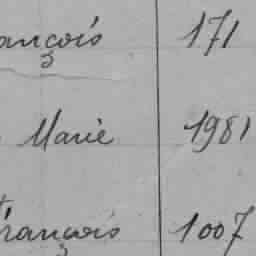 ançois 171
Marie 1981
François 1007